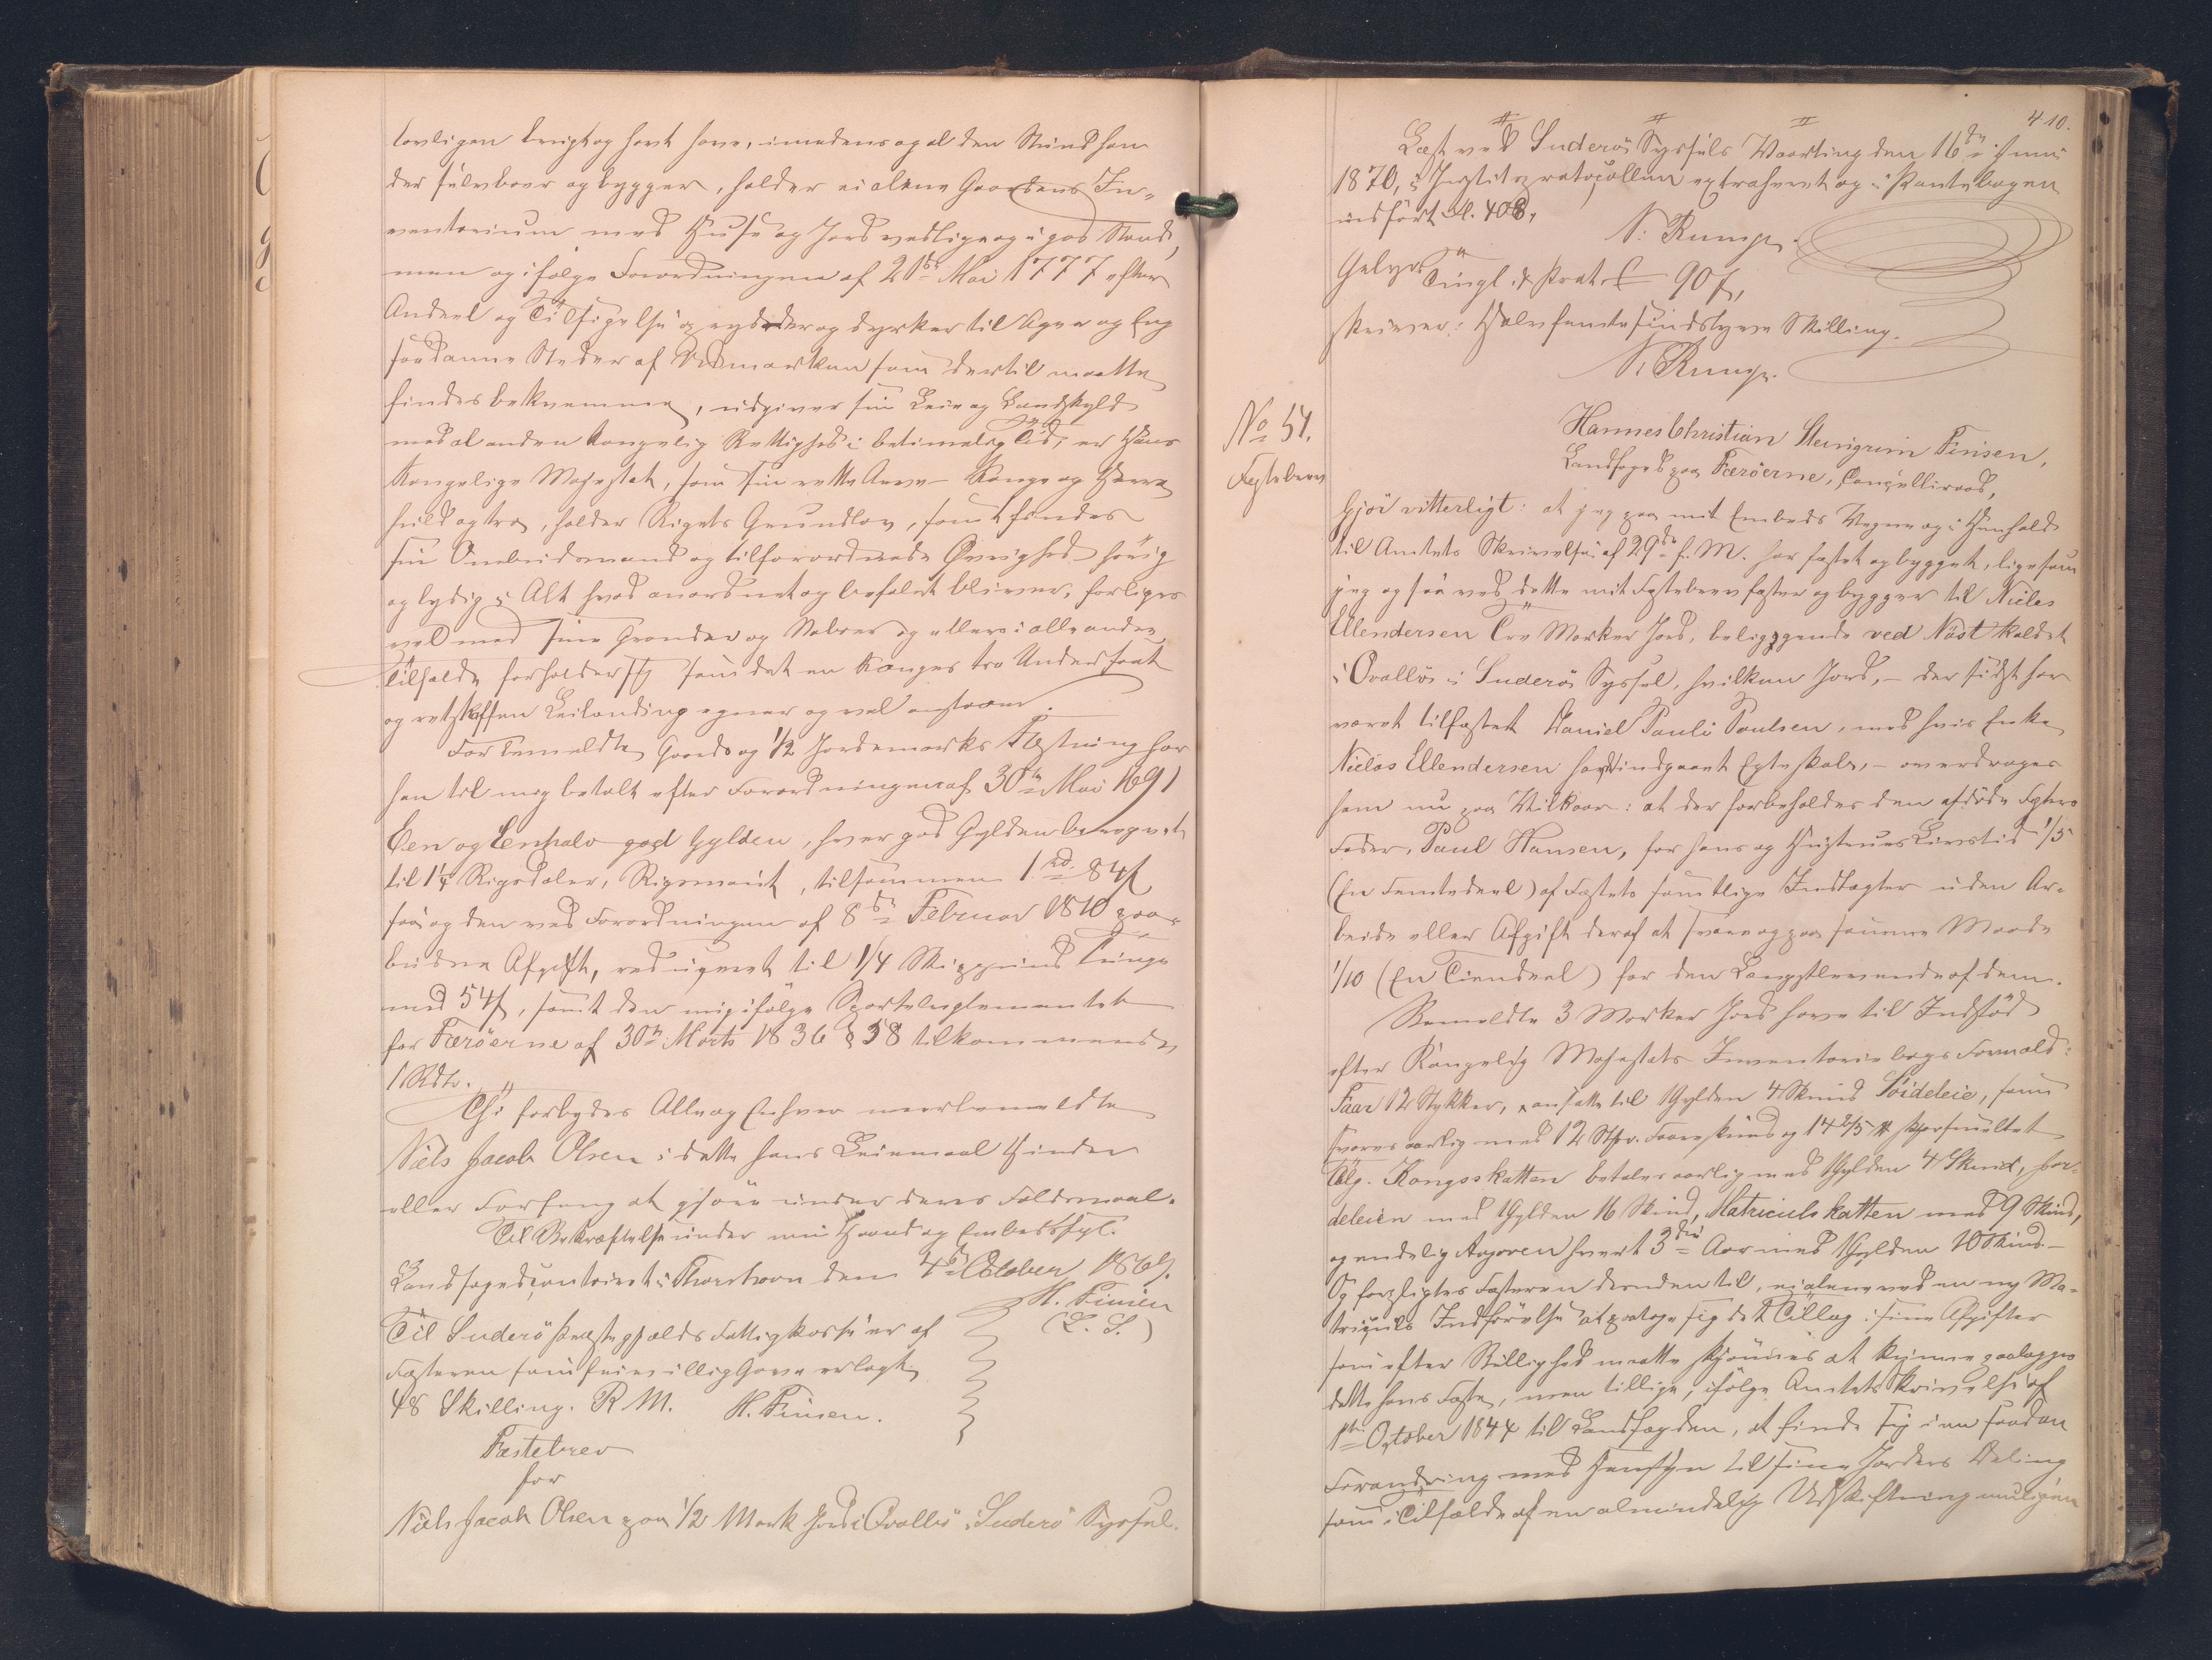 lovligen brugt og havt have, imedens og al den Stund han
der selv boer og bygger, holder ei alene Gaardens In-
ventarium med Huse og Jord vedlige og i god Stand,
men og ifølge Forordningen af 21de Mai 1777 efter
Andeel og Tilsigelse og rydder og dyrker til Ager og Eng
saadanne Steder af Udmarken som dertil maatte
findes bekvemme, udgiver sin Leie og Landskyld
med al anden kongelig Rettighed i betimelig Tid, er Hans
Kongelige Majestæt, som sin rette Arve-Konge og Herre
huld og tro, holder Rigets Grundlov, samt findes
sin Ombudsmand og tilforordnede Øvrighed hørig
og lydig i Alt hvad anordnet og befalet bliver, forliges
vel med sine Grander og Naboer og ellers i alle andre
Tilfælde forholder sig som det en Konges tro Undersaat
og retskaffen Leilænding egner og vel anstaaer.
For bemeldte Gaards og 1/2 Jordemarks Fæstning har
han til mig betalt efter Forordningen af 30te Mai 1691
Een og Eenhalv god Gylden, hver god Gylden beregnet
til 1 1/4 Rigsdaler, Rigsmønt, tilsammen 1 Rd. 84 ſ
saa og den ved Forordningen af 8de Februar 1810 paa-
budne Afgift, reduceret til 1/4 Skippund Tunge
med 54 ſ, samt den mig ifølge Sportelreglementet
for Færøerne af 30te Marts 1836 § 58 tilkommende
1 Rdlr.
Thi forbydes Alle og Enhver meerbemeldte
Niels Jacob Olsen i dette hans Leiemaal Hinder
eller Forfang at gjøre under deres Faldsmaal.
Til Bekræftelse under min Haand og Embedssegl.
Landfogedcontoiret i Thorshavn den 4de October 1869.
H. Finsen
(L. S.)
Til Suderø Præstegjælds Fattigkasse er af
Fæsteren som frivillig Gave erlagt
48 Skilling. R. M. H. Finsen.
Fæstebrev
for
Niels Jacob Olsen paa 1/2 Mark Jord i Qvalbø i Suderø Syssel.
410.
Læst ved Suderø Syssels Vaarting den 16de Juni
1870, i Justitsprotocollen extraheret og i Pantebogen
indført Fol. 408.
N. Rump.
Gebyr
Tingl. & Prot. 90 ſ,
skriver: Halvfemsindstyve Skilling.
N. Rump.
No 51.
Fæstebrev
Hannes Christian Steingrim Finsen,
Landfoged paa Færøerne, Cancelliraad,
Gjør vitterligt: at jeg paa mit Embeds Vegne og i Henhold
til Amtets Skrivelse af 29de f. M. har fæstet og bygget, ligesom
jeg og saa ved dette mit Fæstebrev fæster og bygger til Niclas
Ellendersen Tre Marker Jord, beliggende ved Nøst kaldet
i Qvalbø i Suderø Syssel, hvilken Jord, – der sidst har
været tilfæstet Daniel Pauli Poulsen, med hvis Enke
Niclas Ellendersen har indgaaet Egteskab, – overdrages
ham nu paa Vilkaar: at der forbeholdes den afdøde Fæsters
Fader, Paul Hansen, for hans og Hustrues Livstid 1/5
(En Femtedeel) af Fæstets samtlige Indtægter uden Ar-
beide eller Afgift deraf at svare og paa samme Maade
1/10 (En Tiendeel) for den Længstlevende af dem.
Bemeldte 3 Marker Jord have til Indstød
efter Kongelig Majestæts Inventarie bogs Formeld:
Faar 12 Stykker, ansatte til 1 Gylden 4 Skind Søideleie, som
svares aarlig med 12 Stkr. Faareskind og 14 2/5 ℔ skjærsmeltet
Talg. Kongsskatten betales aarlig med 1 Gylden 4 Skind, Jor-
deleien med 1 Gylden 16 Skind, Matriculskatten med 9 Skind,
og endelig hvert 3die Aar med 1 Gylden 10 Skind –
Og forpligtes Fæsteren desuden til, ei alene ved en ny Ma-
triculs Indførelse at paatage sig det Tillæg i sine Afgifter
som efter Billighed maatte skjønnes at kunne paalægges
dette hans Fæste, men tillige, ifølge Amtets Skrivelse af
1ste October 1844 til Landfogden, at finde sig i en saadan
Forandring med Hensyn til sine Jorders Deling
som i Tilfælde af en almindelig Udskiftning muligen